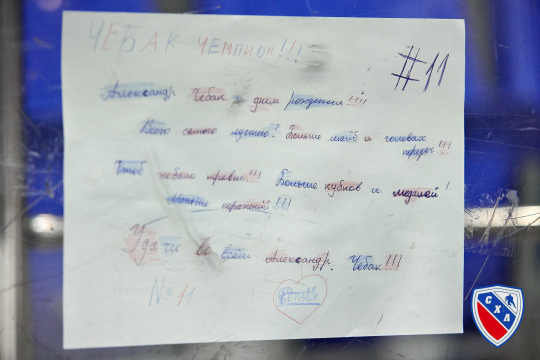 ЧЕБАК ЧЕМПИОН!!!
#11
Александр Чебак с днем рождения!!!!
Всего самого лучшего! Больше шайб и голевых
передач!!!
Чтоб небыло травм!!! Больше кубков и медалей!
Меньше поражений!!!
Удачи во всём Александр Чебак!!!
№11
СХЛ